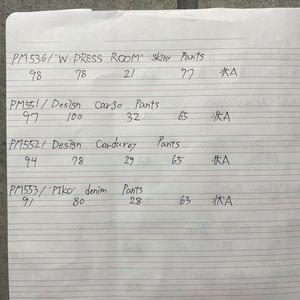 PM536/"W DRESS ROOM" skiny Pants
98 78 21 77 水A
PM551/Design cargo Pants
97 100 32 65 水A
PM552/Design Corduroy Pants
94 78 29 65 水A
PM553/"PIKO" denim Pants
91 80 28 63 水A